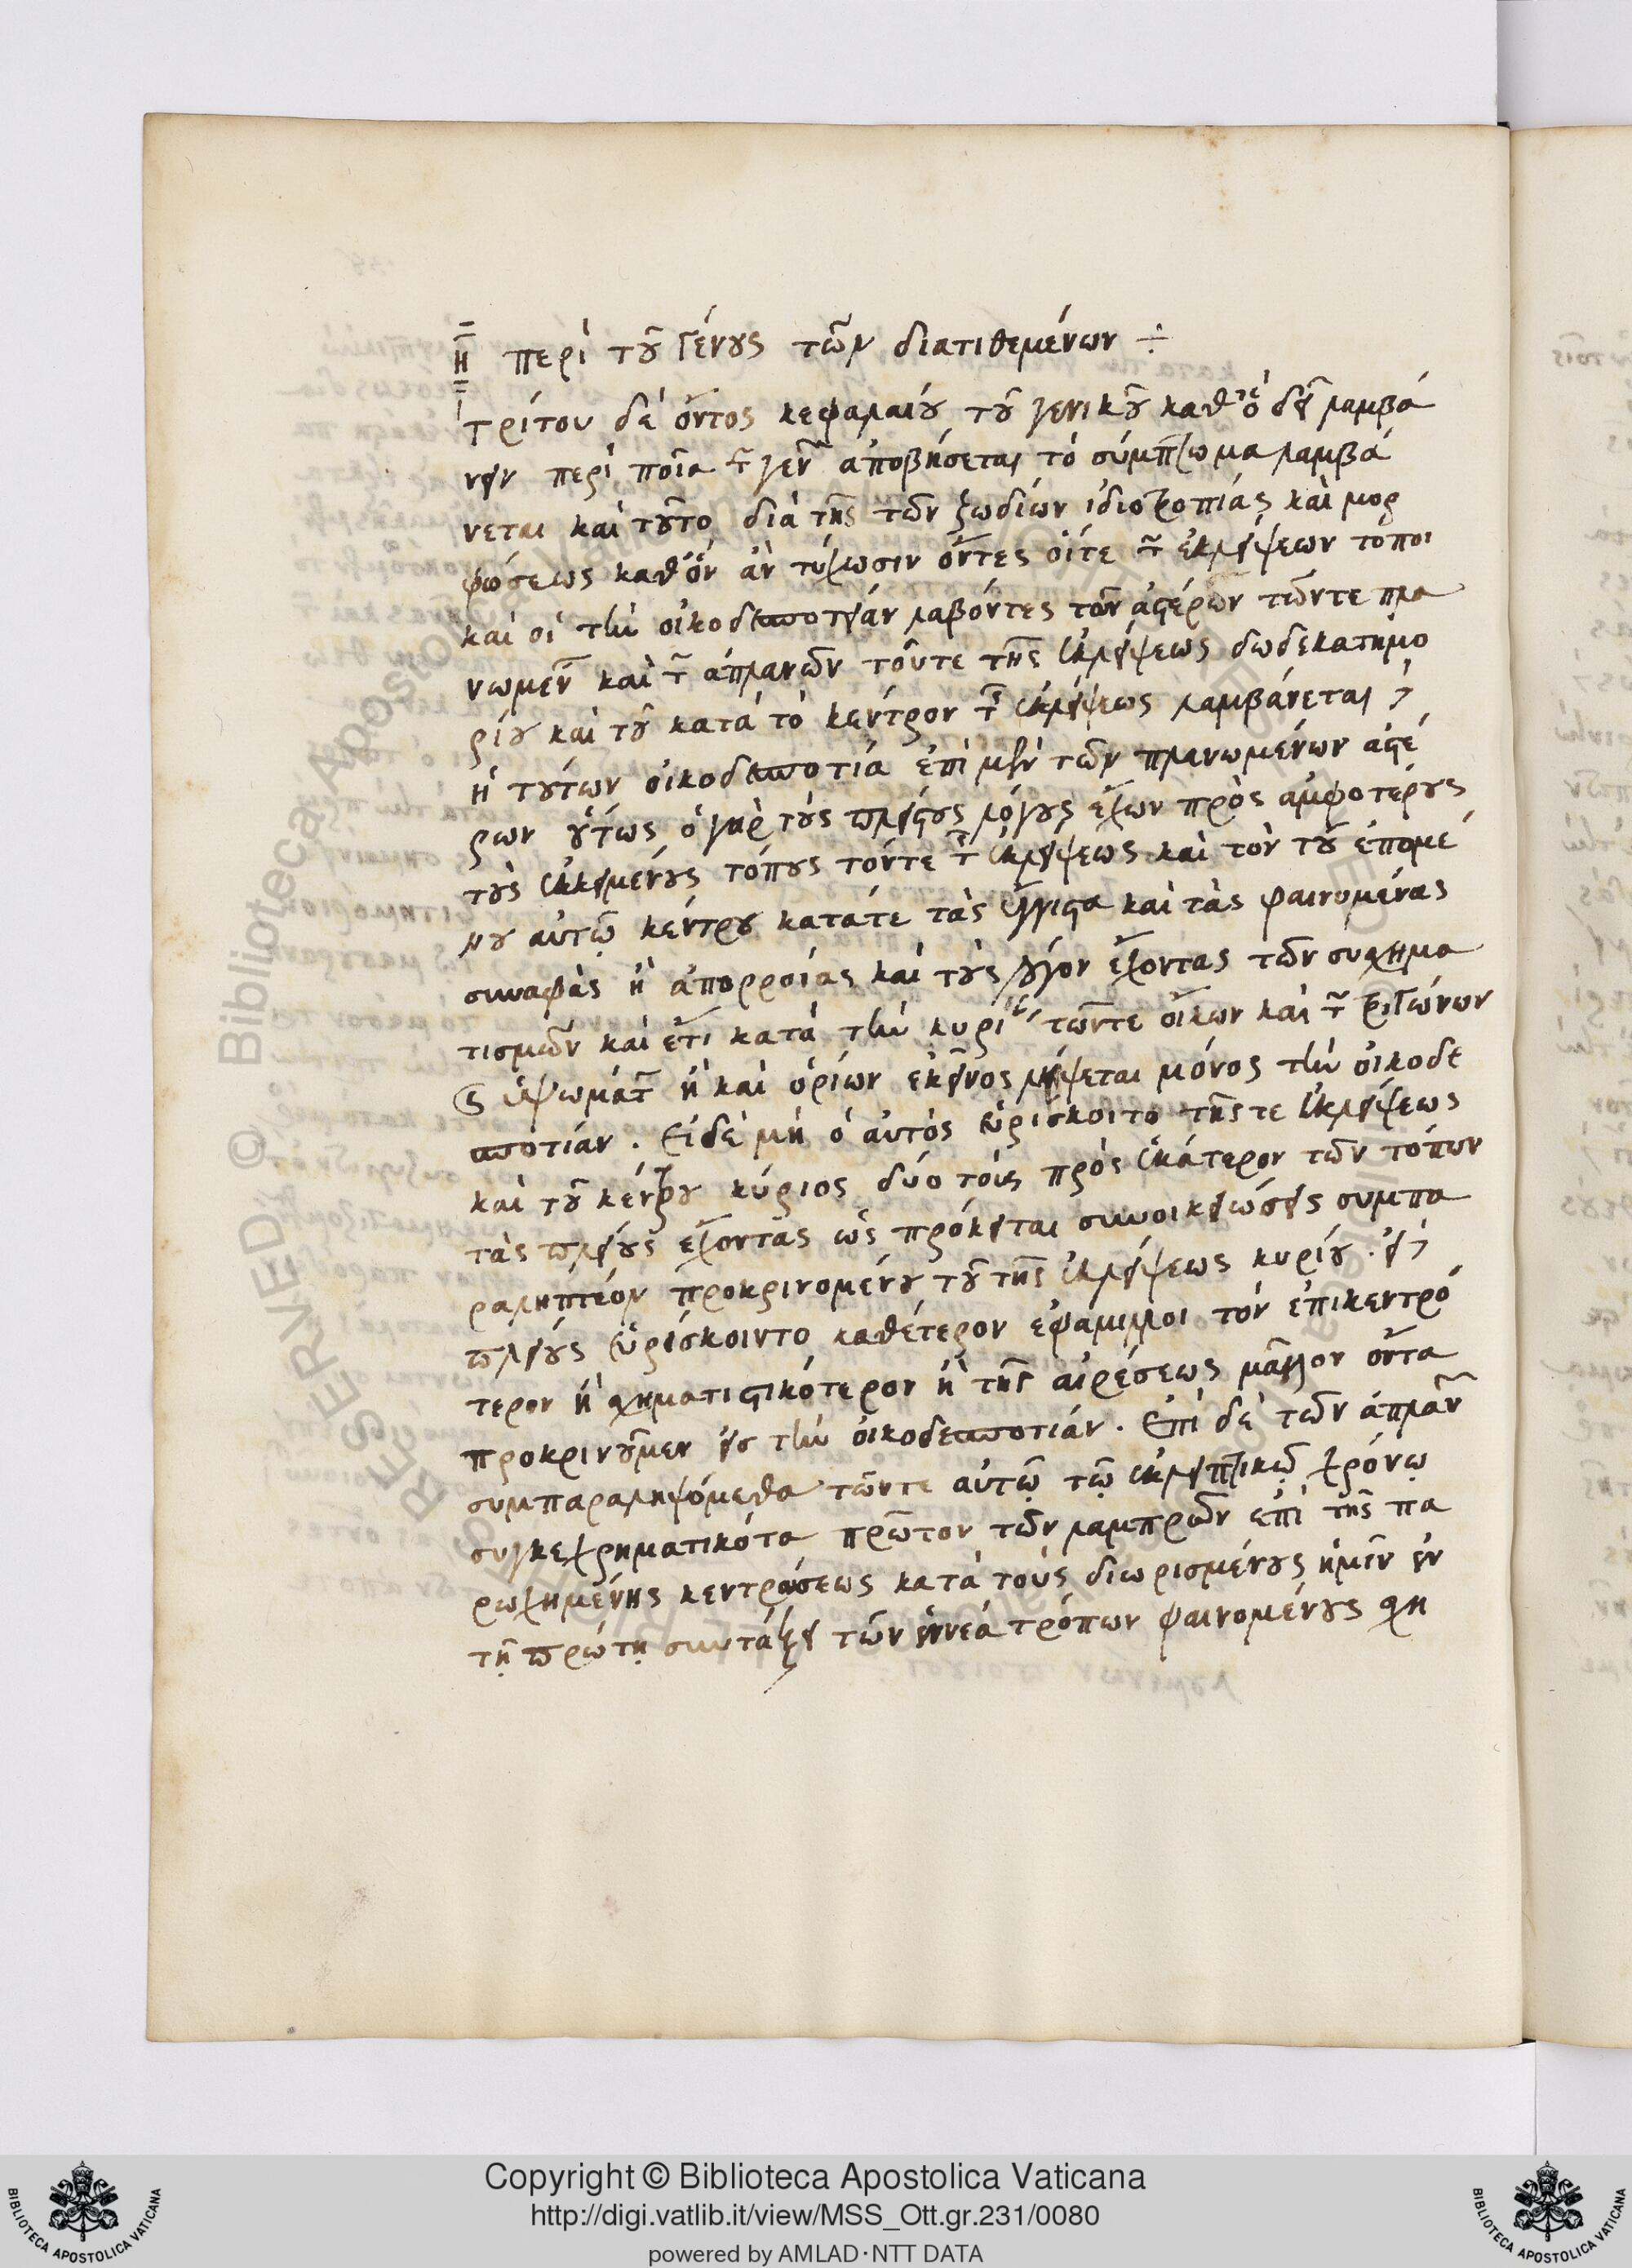 η περὶ τοῦ γένους τῶν διατιθεμένων ÷
τρίτου δὲ ὄντος κεφαλαίου τοῦ γενικοῦ καθ' ὃ δεῖ λαμβά
νειν περὶ ποῖα τ γεν ἀποβήσεται τὸ σύμπτωμα λαμβά
νεται καὶ τοῦτο διὰ τῆς τῶν ζωδίων ἰδιοτροπίας καὶ μορ
φώσεως καθ' ὃν ἂν τύχωσιν ὄντες οἵτε τ ἐκλείψεων τόποι
καὶ οἱ τὴν οἰκοδεσποτείαν λαβόντες τῶν ἀστέρων τῶντε πλα
νωμέν καὶ τ ἀπλανῶν τοῦτε τῆς ἐκλείψεως δωδεκατημο
ρίου καὶ τοῦ κατὰ τὸ κέντρον τ ἐκλείψεως λαμβάνεται
ἡ τούτων οἰκοδεσποτία ἐπὶ μὲν τῶν πλανωμένων ἀστέ
ρων οὕτως ὁ γὰρ τοὺς πλείστους λόγους ἔχων πρὸς ἀμφοτέρους
τοὺς ἐκκειμένους τόπους τόντε τ ἐκλείψεως καὶ τὸν τοῦ ἑπομέ
νου αὐτῷ κέντρου κατάτε τὰς ἔγγιστα καὶ τὰς φαινομένας
συναφὰς ἢ ἀπορροίας καὶ τοὺς λόγον ἔχοντας τῶν συσχημα
τισμῶν καὶ ἔτι κατὰ τὴν κυρί τῶντε οἴκων καὶ τ τριγώνων
καὶ ὑψωμάτ ἢ καὶ ὁρίων ἐκεῖνος λήψεται μόνος τὴν οἰκοδε
σποτίαν. Εἰδὲ μὴ ὁ αὐτὸς εὑρίσκοιτο τῆςτε ἐκλείψεως
καὶ τοῦ κέντρου κύριος δύο τοὺς πρὸς ἑκάτερον τῶν τόπων
τὰς πλείους ἔχοντας ὡς πρόκειται συνοικειώσεις συμπα
ραληπτέον προκρινομένου τοῦ τῆς ἐκλείψεως κυρίου. εἰ
πλείους εὑρίσκοιντο καθέτερον ἐφάμιλλοι τὸν ἐπικεντρό
τερον ἢ χρηματιστικότερον ἢ τῆς αἱρέσεως μᾶλλον ὄντα
προκρινοῦμεν εἰς τὴν οἰκοδεσποτίαν. Ἐπὶ δὲ τῶν ἀπλαν
συμπαραληψόμεθα τῶντε αὐτῷ τῷ ἐκλειπτικῷ χρόνῳ
συγκεχρηματικότα πρῶτον τῶν λαμπρῶν ἐπὶ τῆς πα
ρῳχημένης κεντρώσεως κατὰ τοὺς διωρισμένους ἡμῖν ἐν
τῇ πρώτῃ συντάξει τῶν ἐννέα τρόπων φαινομένους σχη
Copyright © Biblioteca Apostolica Vaticana
http://digi.vatlib.it/view/MSS_Ott.gr.231/0080
powered by AMLAD·NTT DATA